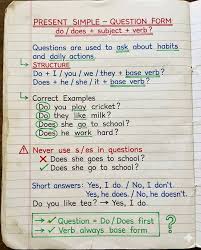 PRESENT SIMPLE – QUESTION FORM
do / does + subject + verb?
Questions are used to ask about habits
and daily actions.
↳ STRUCTURE
Do + I / you / we / they + base verb?
Does + he / she / it + base verb?
↳ Correct Examples
Do you play cricket?
Do they like milk?
Does she go to school?
Does he work hard?
⚠ Never use s/es in questions
✗ Does she goes to school?
✓ Does she go to school?
Short answers: Yes, I do. / No, I don't.
Yes, he does. / No, he doesn't.
Do you like tea? → Yes, I do.
→ ✓ Question = Do / Does first
→ ✓ Verb always base form
?